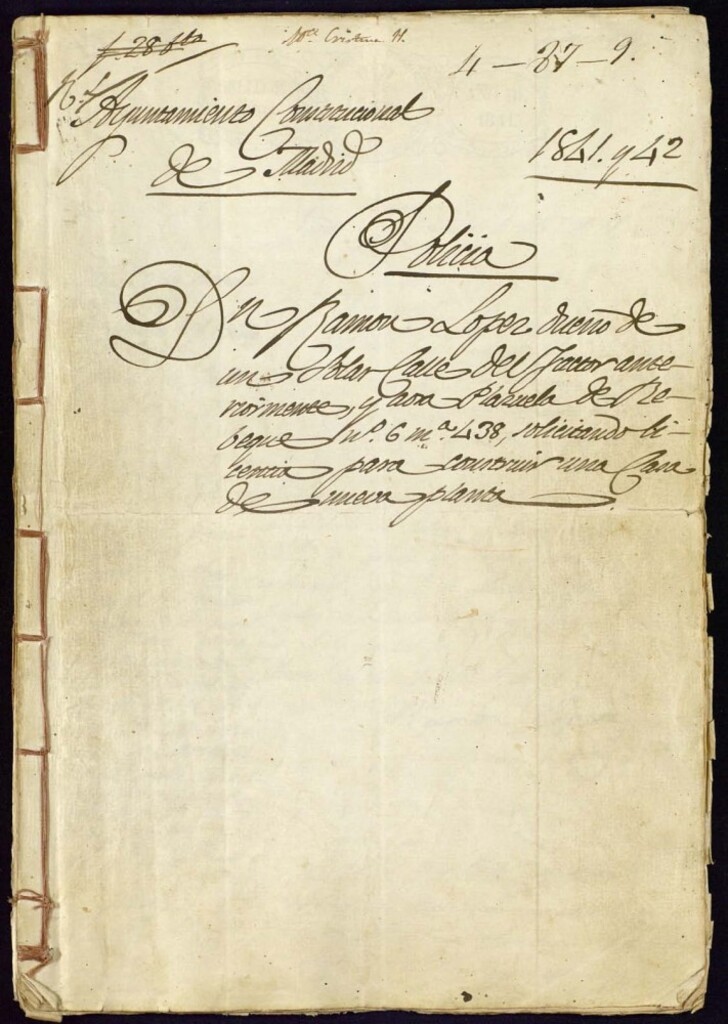 Mª Cristina H.
4 - 37 - 9.
Ayuntamiento Constitucional
de Madrid
1841. y 42
Policia
Dn Ramon Lopez dueño de
un Solar Calle del Factor ante-
riormente, y aora Plazuela de Re-
beque nº. 6 mª. 438, solicitando li-
cencia para construir una Casa
de nueva planta